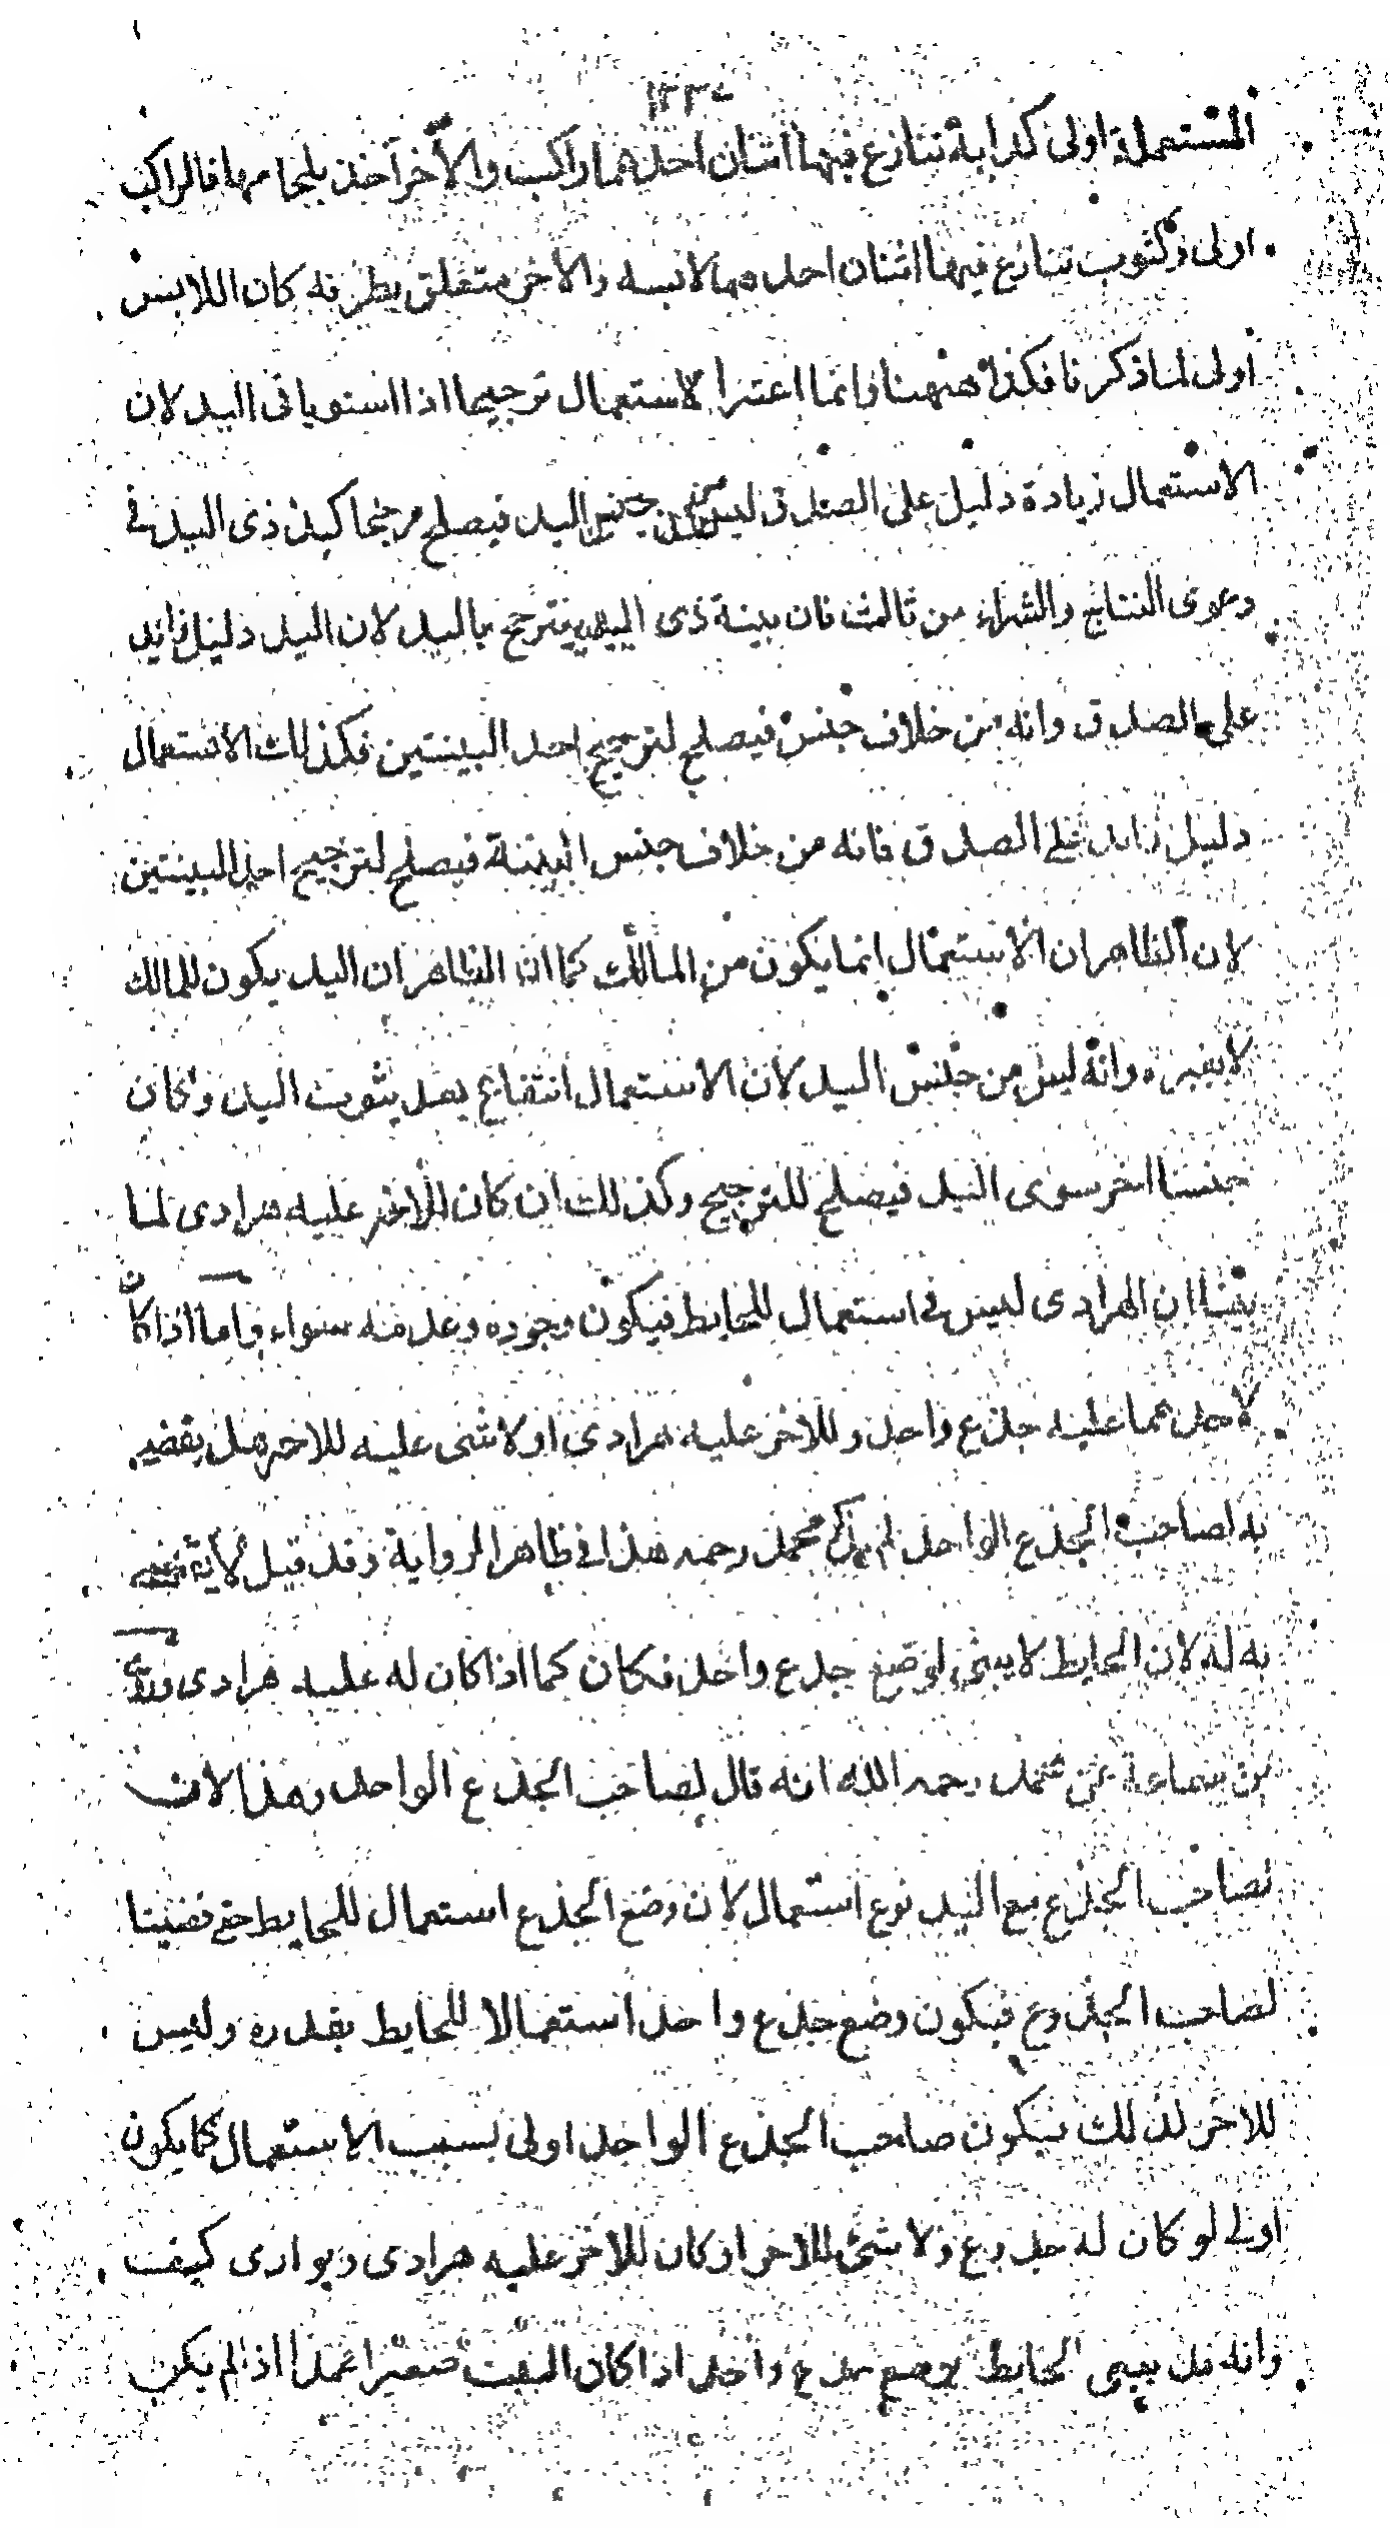 ١٢٣٠
المستعمل اولى كدابة تنازع فيها اثنان احدهما راكب والآخر آخذ بلجامها فالراكب
اولى وكثوب تنازع فيها اثنان احدهما لابسه والآخر متعلق بطرفه كان اللابس
اولى لما ذكرنا فكذا ههنا وانما اعتبرا لاستعمال ترجيحا اذا استويا فى اليد لان
الاستعمال زيادة دليل على الصدق ليس من جنس اليد فيصلح مرجحا كيد ذى اليد فى
دعوى النتاج والشراء من ثالث فان بينة ذى اليد يترجح باليد لان اليد دليل زايد
على الصدق وانه من خلاف جنس فيصلح لترجيح احد البينتين فكذلك الاستعمال
دليل زايد على الصدق فانه من خلاف جنس البينة فيصلح لترجيح احد البينتين
لان الظاهر ان الاستعمال انما يكون من المالك كما ان الظاهر ان اليد يكون للمالك
لا بغيره وانه ليس من جنس اليد لان الاستعمال انتفاع بعد ثبوت اليد وكان
جنسا اخر سوى اليد فيصلح للترجيح وكذلك ان كان للاخر عليه هرادى لما
بينا ان الهرادى ليس فى استعمال للحايط فيكون وجوده وعدمه سواء واما اذا كان
لاحدهما عليه جذع واحد وللاخر عليه هرادى او لا شى عليه للاخر هل يقضى
به لصاحب الجذع الواحد لم يذكر محمد رحمه هذا فى ظاهر الرواية وقد قيل لا يقضى
به له لان الحايط لا يبنى لوضع جذع واحد فكان كما اذا كان له عليه هرادى وروى
بن سماعة عن محمد رحمه الله انه قال لصاحب الجذع الواحد وهذا لان
لصاحب الجذع مع اليد نوع استعمال لان وضع الجذع استعمال للحايط حتى قضينا
لصاحب الجذوع فيكون وضع جذع واحد استعمالا للحايط بقدره وليس
للاخر لذلك فيكون صاحب الجذع الواحد اولى بسبب الاستعمال كما يكون
اولى لو كان له جذوع ولا شئ للاخر او كان للاخر عليه هرادى وبوارى كيف
وانه قد يبنى الحايط لوضع جذع واحد اذا كان البيت صغيرا هذا اذا لم يكن